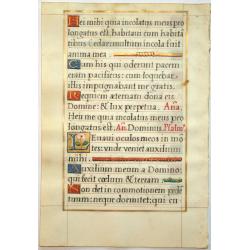 Hei mihi quia incolatus meus pro
longatus est, habitaui cum habitā
tibus Cedar: multum incola fuit
anima mea.
Cum his qui oderunt pacem
eram pacificus: cum loquebar
illis impugnabant me gratis.
Requiem æternam dona eis
Domine: & lux perpetua. Aña.
Heu me quia incolatus meus pro
longatus est. Añ. Dominus. Psalm9.
Leuaui oculos meos in mō
tes: vnde veniet auxilium
mihi.
Auxilium meum a Domino:
qui fecit cœlum & terram.
Non det in commotionem pedē
tuum: neque dormitet, qui cu